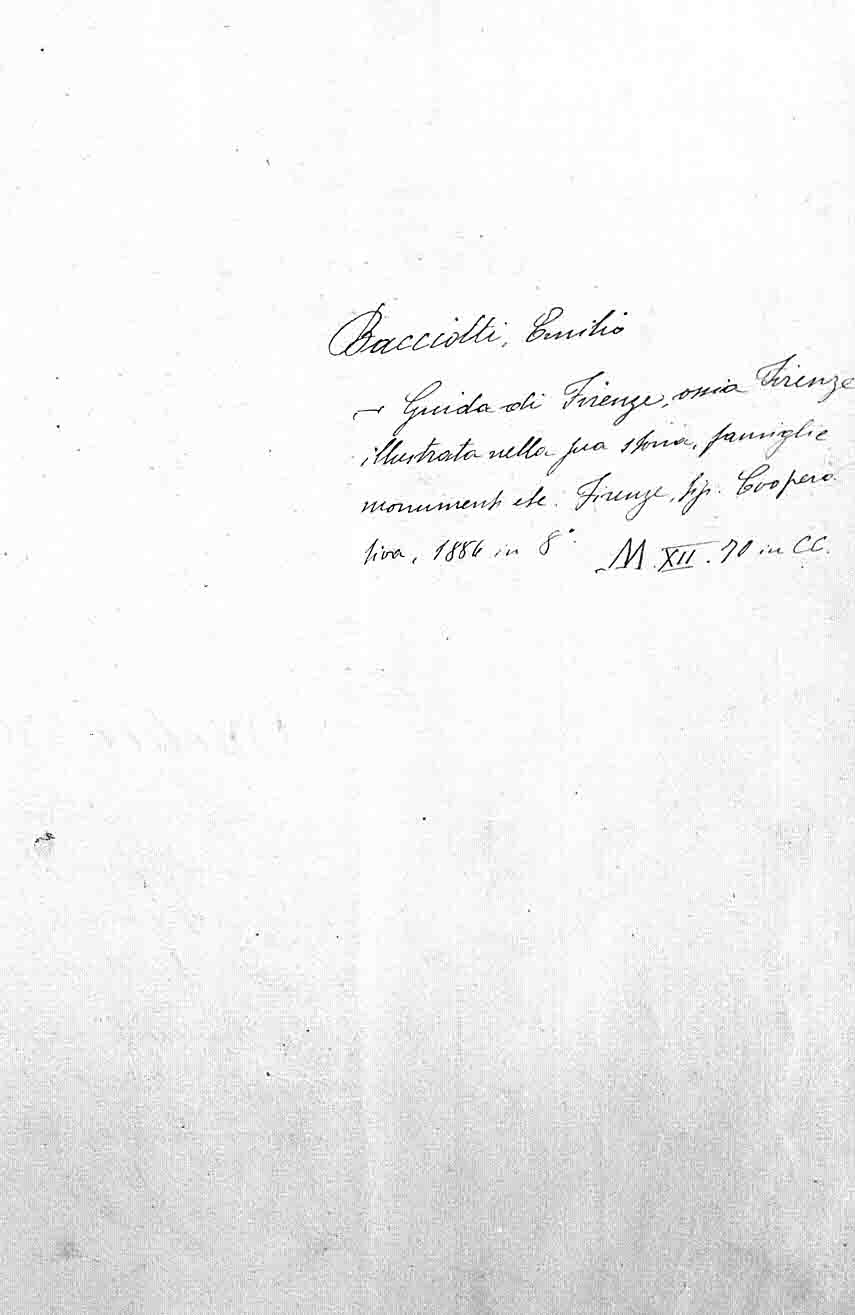 Bacciotti, Emilio
— Guida di Firenze, ossia Firenze
illustrata nella sua storia, famiglie
monumenti etc. Firenze, tip. Coopera-
tiva, 1886 in 8°. M.XII.70 in CC.